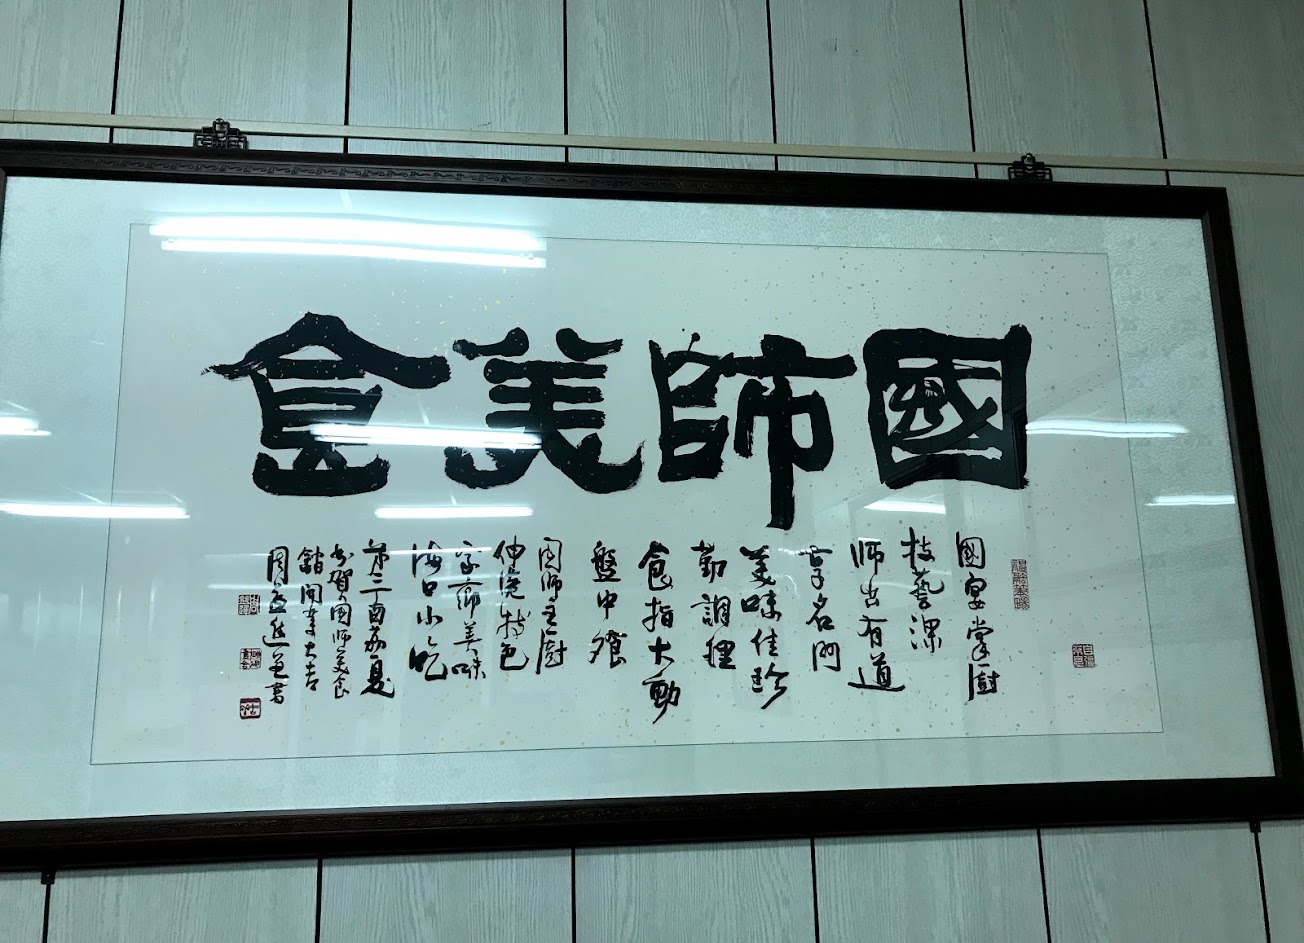 國師美食
國宴掌廚
技藝深
師出有道
享名門
美味佳珍
勤調理
食指大動
盤中飧
國師主廚
伸港特色
家鄉美味
海口小吃
丁酉夏
書賀國師美食
館開幕大吉